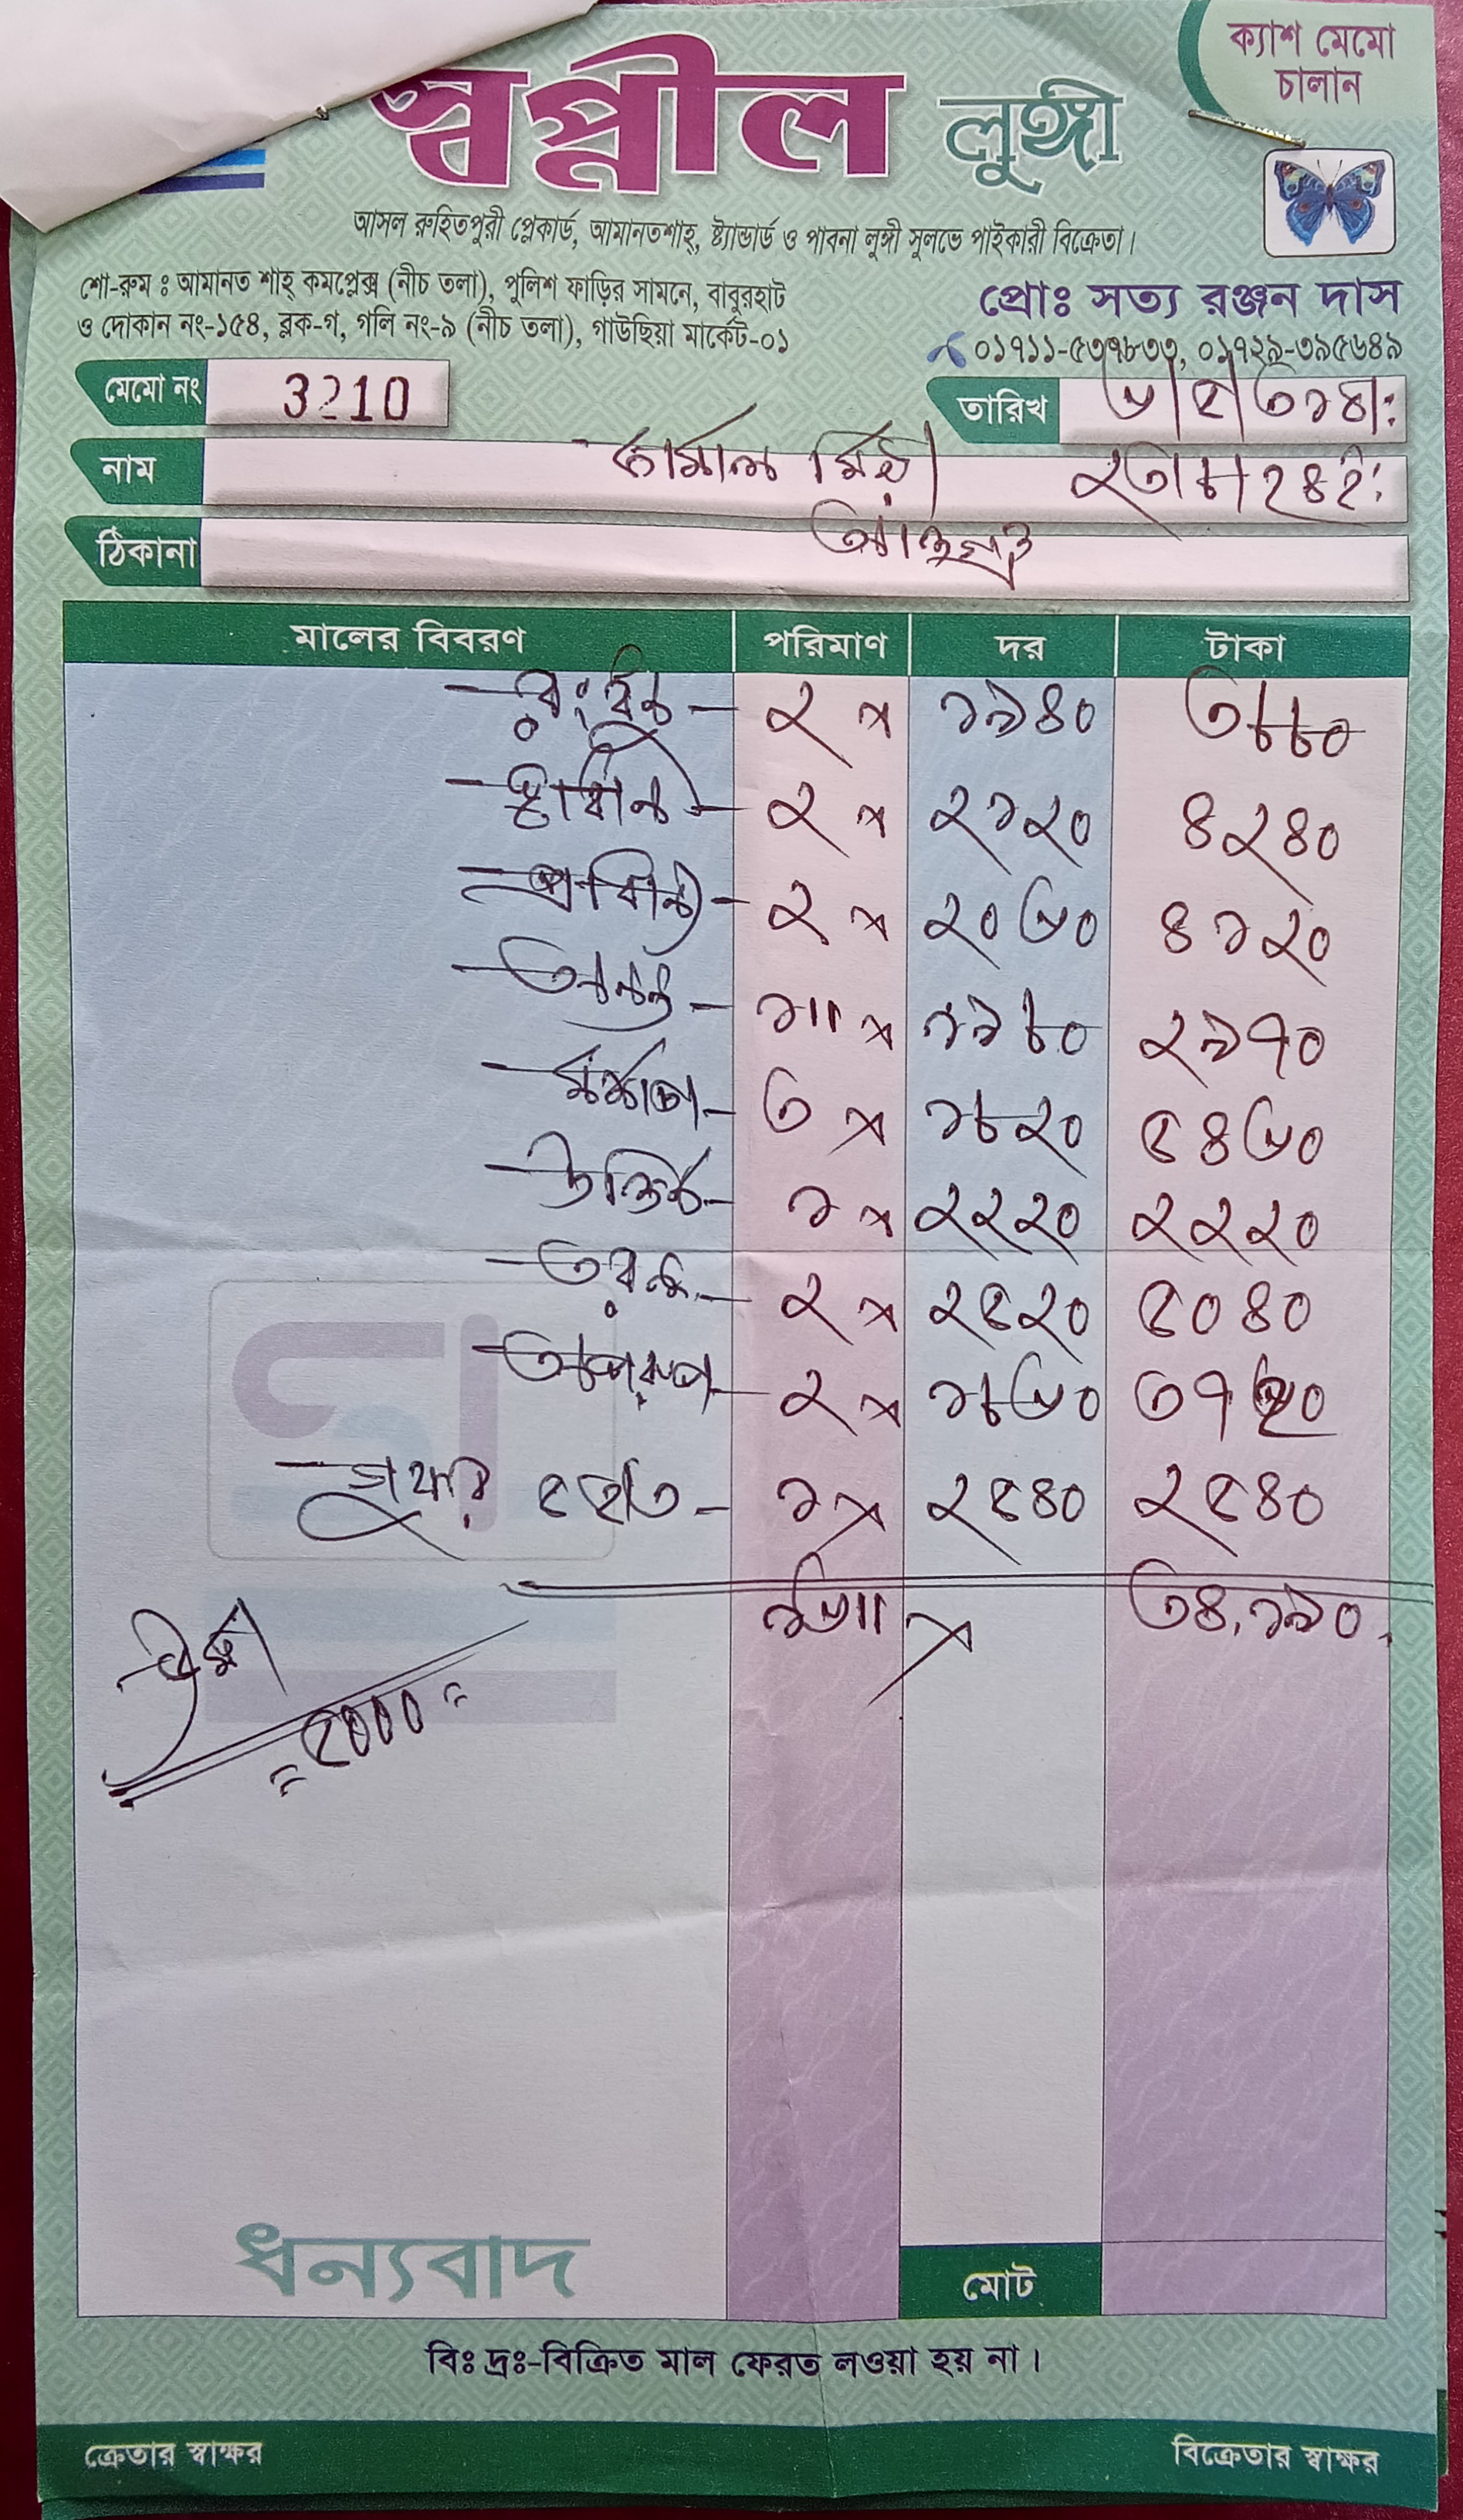 ক্যাশ মেমো
চালান
স্বপ্নীল লুঙ্গী
আসল রুহিতপুরী প্লেকার্ড, আমানতশাহ্, ষ্ট্যান্ডার্ড ও পাবনা লুঙ্গী সুলভে পাইকারী বিক্রেতা।
শো-রুম ঃ আমানত শাহ্ কমপ্লেক্স (নীচ তলা), পুলিশ ফাড়ির সামনে, বাবুরহাট
ও দোকান নং-১৫৪, ব্লক-গ, গলি নং-৯ (নীচ তলা), গাউছিয়া মার্কেট-০১
প্রোঃ সত্য রঞ্জন দাস
০১৭১১-৫৩৭৮৩৩, ০১৭২৯-৩৯৫৬৪৯
মেমো নং 3210
তারিখ
নাম
ঠিকানা
মালের বিবরণ পরিমাণ দর টাকা
২ ১৯৪০ ৩৮৮০
২ ২১২০ ৪২৪০
২ ২০৬০ ৪১২০
অনন্ত ১৷৷ ১৯৮০ ২৯৭০
৩ ১৮২০ ৫৪৬০
১ ২২২০ ২২২০
২ ২৫২০ ৫০৪০
অপরূপ ২ ১৮৬০ ৩৭২০
সুপার ৫ হাত ১ ২৫৪০ ২৫৪০
১৬৷৷ ৩৪,১৯০
জমা
= ৫০০০ =
ধন্যবাদ
মোট
বিঃ দ্রঃ-বিক্রিত মাল ফেরত লওয়া হয় না।
ক্রেতার স্বাক্ষর বিক্রেতার স্বাক্ষর